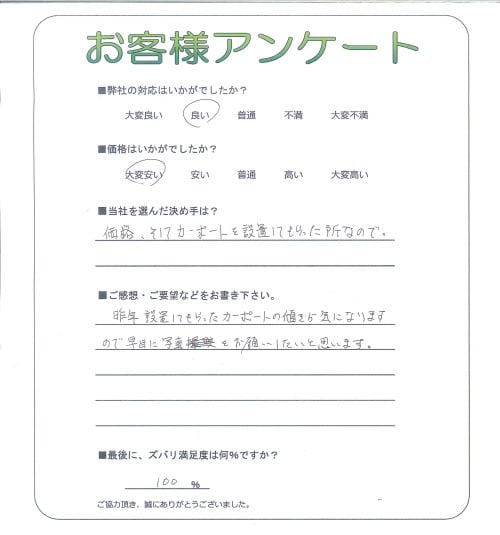 お客様アンケート
■弊社の対応はいかがでしたか？
大変良い 良い 普通 不満 大変不満
■価格はいかがでしたか？
大変安い 安い 普通 高い 大変高い
■当社を選んだ決め手は？
価格、そしてカーポートを設置してもらった所なので。
■ご感想・ご要望などをお書き下さい。
昨年設置してもらったカーポートの値きが気になります
ので早目に写真をお願いしたいと思います。
■最後に、ズバリ満足度は何%ですか？
100 %
ご協力頂き、誠にありがとうございました。